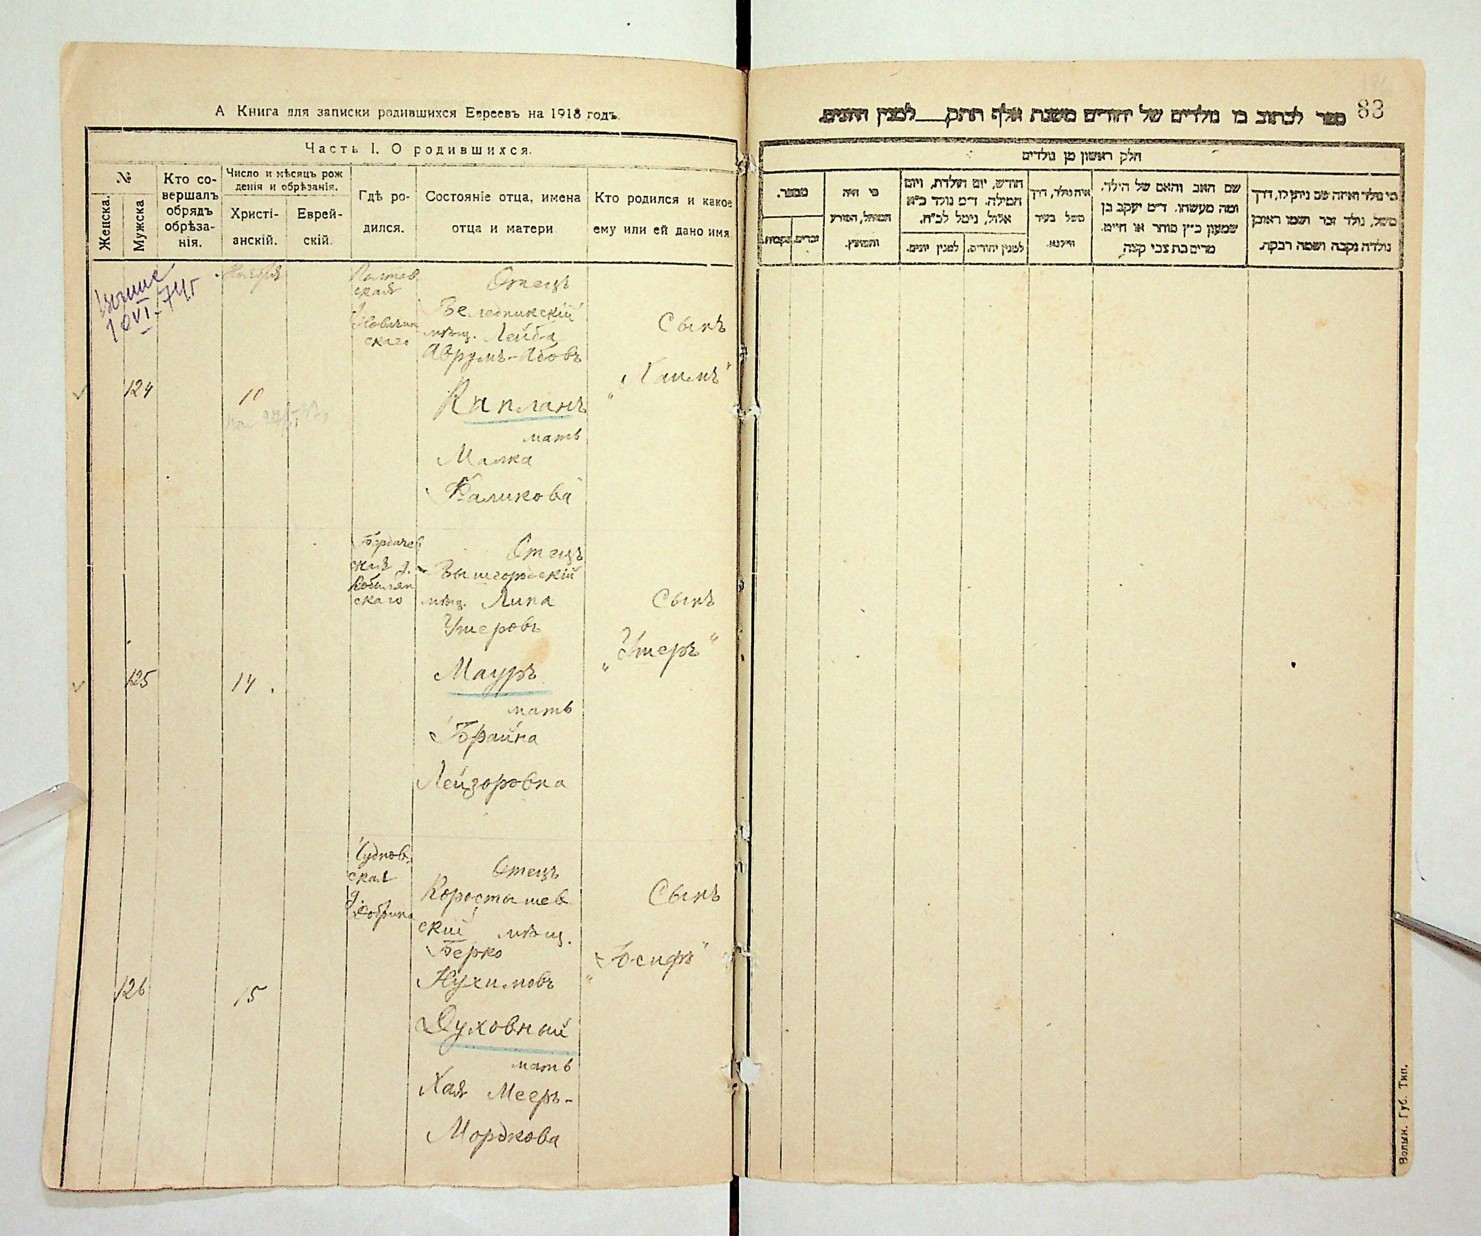 А Книга для записки родившихся Евреевъ на 1918 годъ.
Часть I. О родившихся.
№
Женска.
Мужска
Кто совершалъ
обрядъ
обрѣза-
нія.
Число и мѣсяцъ рож
денія и обрѣзанія.
Христі-
анскій.
Еврей-
скій.
Гдѣ ро-
дился.
Состояніе отца, имена
отца и матери.
Кто родился и какое
ему или ей дано имя
Ноября
124
10
Отецъ
мѣщ. Лейба
Аврумъ-
Капланъ
мать
Малка
Фаликова
Сынъ
„Хаимъ"
125
14
Бердичев
ская
Отецъ
Вышгородскій
мѣщ. Липа
Ушеровъ
Мауръ
мать
Брайна
Лейзоровна
Сынъ
„Ушеръ"
126
15
Чуднов-
ская
д.
Отецъ
Коростышев
скій мѣщ.
Берко
Нухимовъ
Духовный
мать
Хая Мееръ-
Мордкова
Сынъ
„Іосифъ"
83
ספר לכתוב בו נולדים של יהודים משנת אלף תתק___למנין היונים.
חלק ראשון מן נולדים
מספר.
זכרים.
נקבות.
מי היה
המוהל, הפורע
והמוצץ.
חודש, יום הולדת, ויום
המילה. ד״מ נולד כ״א
אלול, נימול לכ״ח.
למנין יונים.
למנין יהודים.
איה נולד, דרך
משל בעיר
ווילנא.
שם האב והאם של הילד.
ומה מעשהו. ד״מ יעקב בן
שמעון כ״ץ סוחר או חייט.
מרים בת צבי קצה.
מי נולד ואיזה שם ניתן לו, דרך
משל, נולד זכר ושמו ראובן
נולדה נקבה ושמה רבקה.
Волын. Губ. Тип.